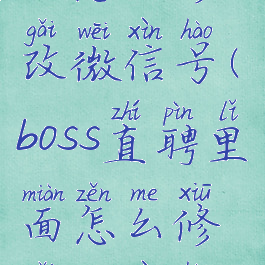 gǎi wēi xìn hào
改微信号(
zhí pìn lǐ
boss直聘里
miàn zěn me xiū
面怎么修